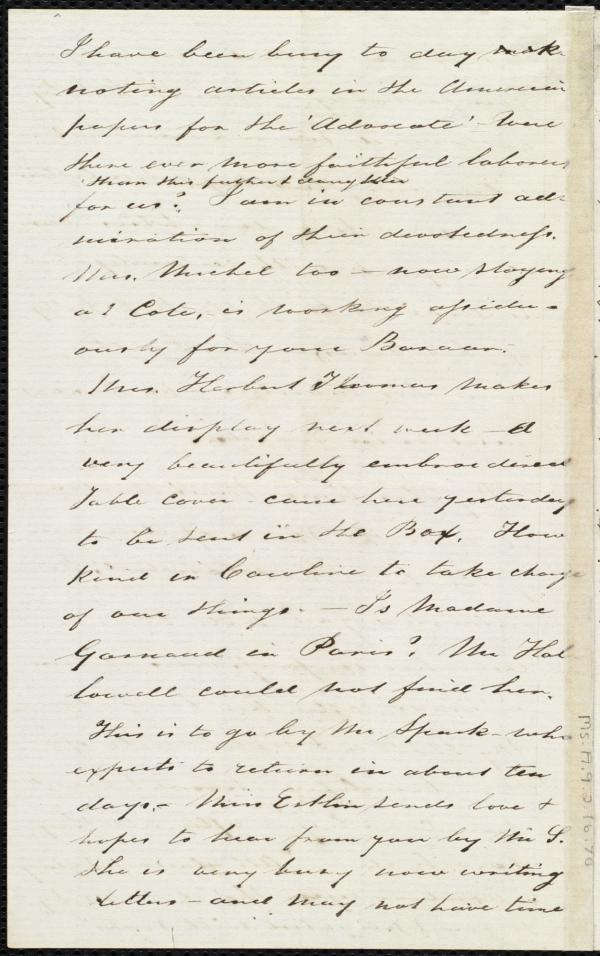 I have been busy to day mak
noting articles in the American
papers for the 'Advocate' - Were
there ever more faithful laborers
than this father & daughter
for us? I am in constant ad-
miration of their devotedness.
Mrs. Michel too - now staying
at Cote, is working assidu-
ously for your Bazaar.
Mrs. Herbert Thomas makes
her display next week - A
very beautifully embroidered
Table cover came here yesterday
to be sent in the Box. How
kind in Caroline to take charge
of our things. - Is Madame
in Paris? Mr Hal
lowell could not find her.
This is to go by Mr Spark - who
expects to return in about ten
days. - Miss Estlin sends love &
hopes to hear from you by Mr S.
She is very busy now writing
letters - and may not have time
Ms.A.9.2.16.70